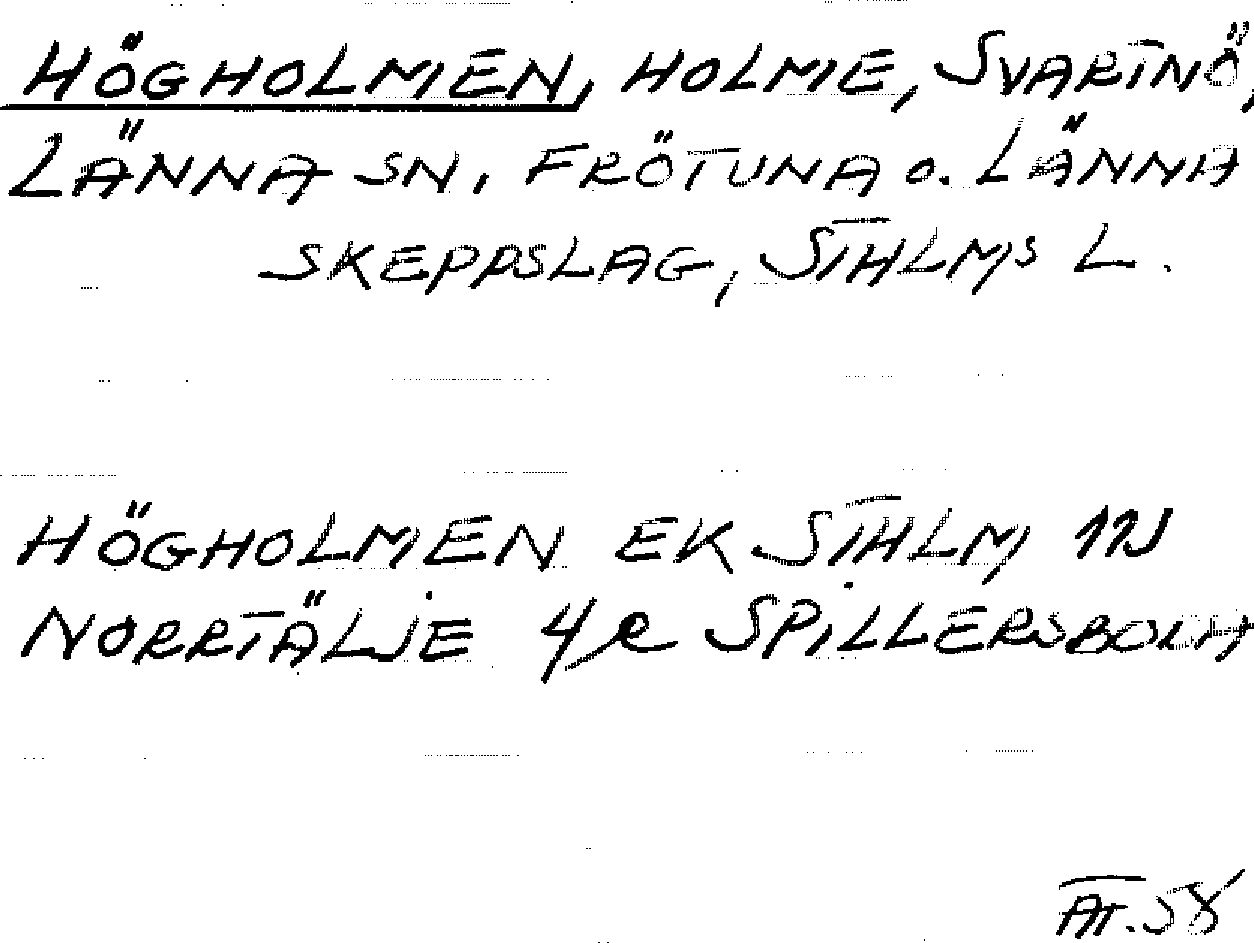 HÖGHOLMEN, HOLME, SVARTNÖ,
LÄNNA SN, FRÖTUNA O. LÄNNA
SKEPPSLAG, STHLMS L.
HÖGHOLMEN EK STHLM 1NJ
NORRTÄLJE 4/e SPILLERSBODA
AT. 58